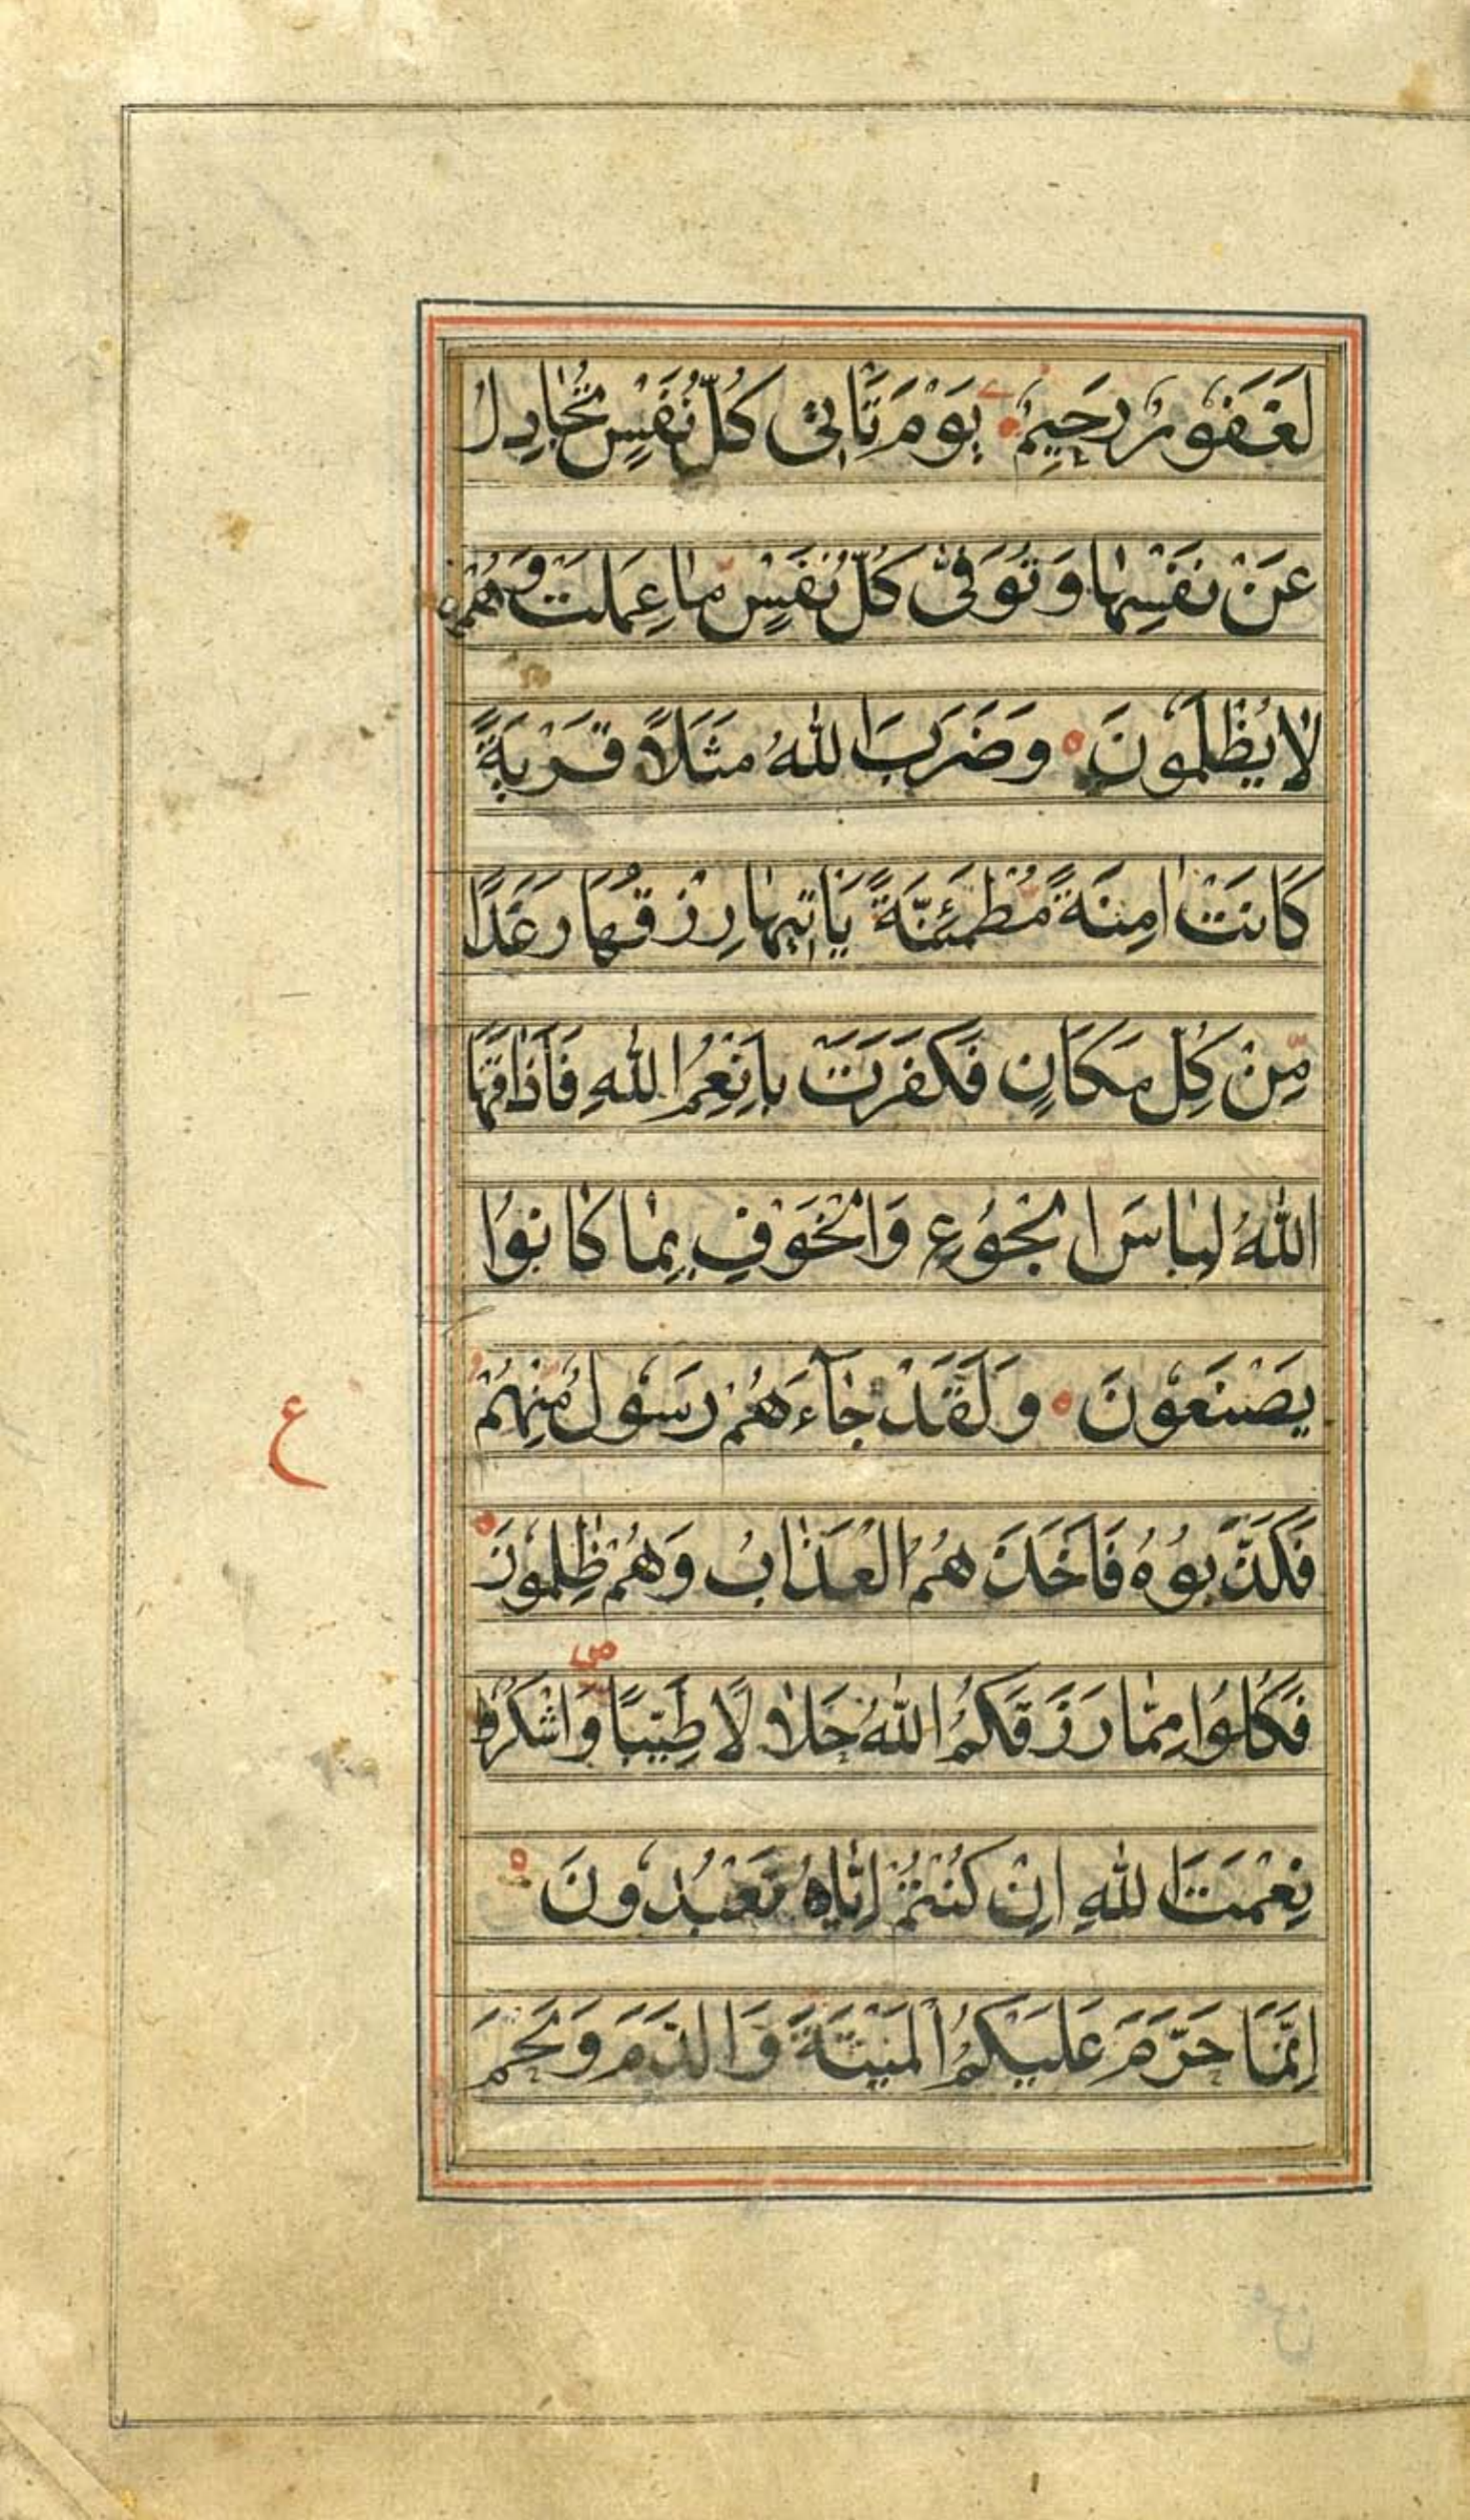 لَغَفُورٌ رَحِيمٌ يَوْمَ تَأْتِي كُلُّ نَفْسٍ تُجَادِلُ
عَنْ نَفْسِهَا وَتُوَفّٰى كُلُّ نَفْسٍ مَا عَمِلَتْ وَهُمْ
لَا يُظْلَمُونَ وَضَرَبَ اللّٰهُ مَثَلًا قَرْيَةً
كَانَتْ اٰمِنَةً مُطْمَئِنَّةً يَأْتِيهَا رِزْقُهَا رَغَدًا
مِّنْ كُلِّ مَكَانٍ فَكَفَرَتْ بِاَنْعُمِ اللّٰهِ فَاَذَاقَهَا
اللّٰهُ لِبَاسَ الْجُوعِ وَالْخَوْفِ بِمَا كَانُوا
يَصْنَعُونَ وَلَقَدْ جَآءَهُمْ رَسُولٌ مِّنْهُمْ
فَكَذَّبُوهُ فَاَخَذَهُمُ الْعَذَابُ وَهُمْ ظٰلِمُونَ
ع
فَكُلُوا مِمَّا رَزَقَكُمُ اللّٰهُ حَلَالًا طَيِّبًا وَاشْكُرُوا
نِعْمَتَ اللّٰهِ اِنْ كُنْتُمْ اِيَّاهُ تَعْبُدُونَ
اِنَّمَا حَرَّمَ عَلَيْكُمُ الْمَيْتَةَ وَالدَّمَ وَلَحْمَ